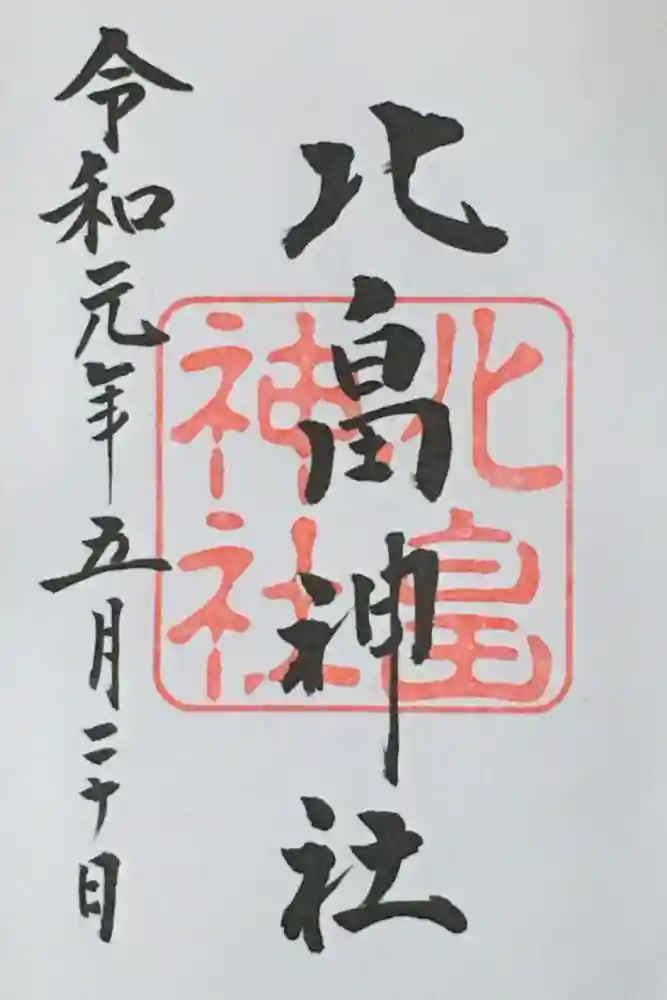 北畠神社
北畠神社
令和元年五月二十日